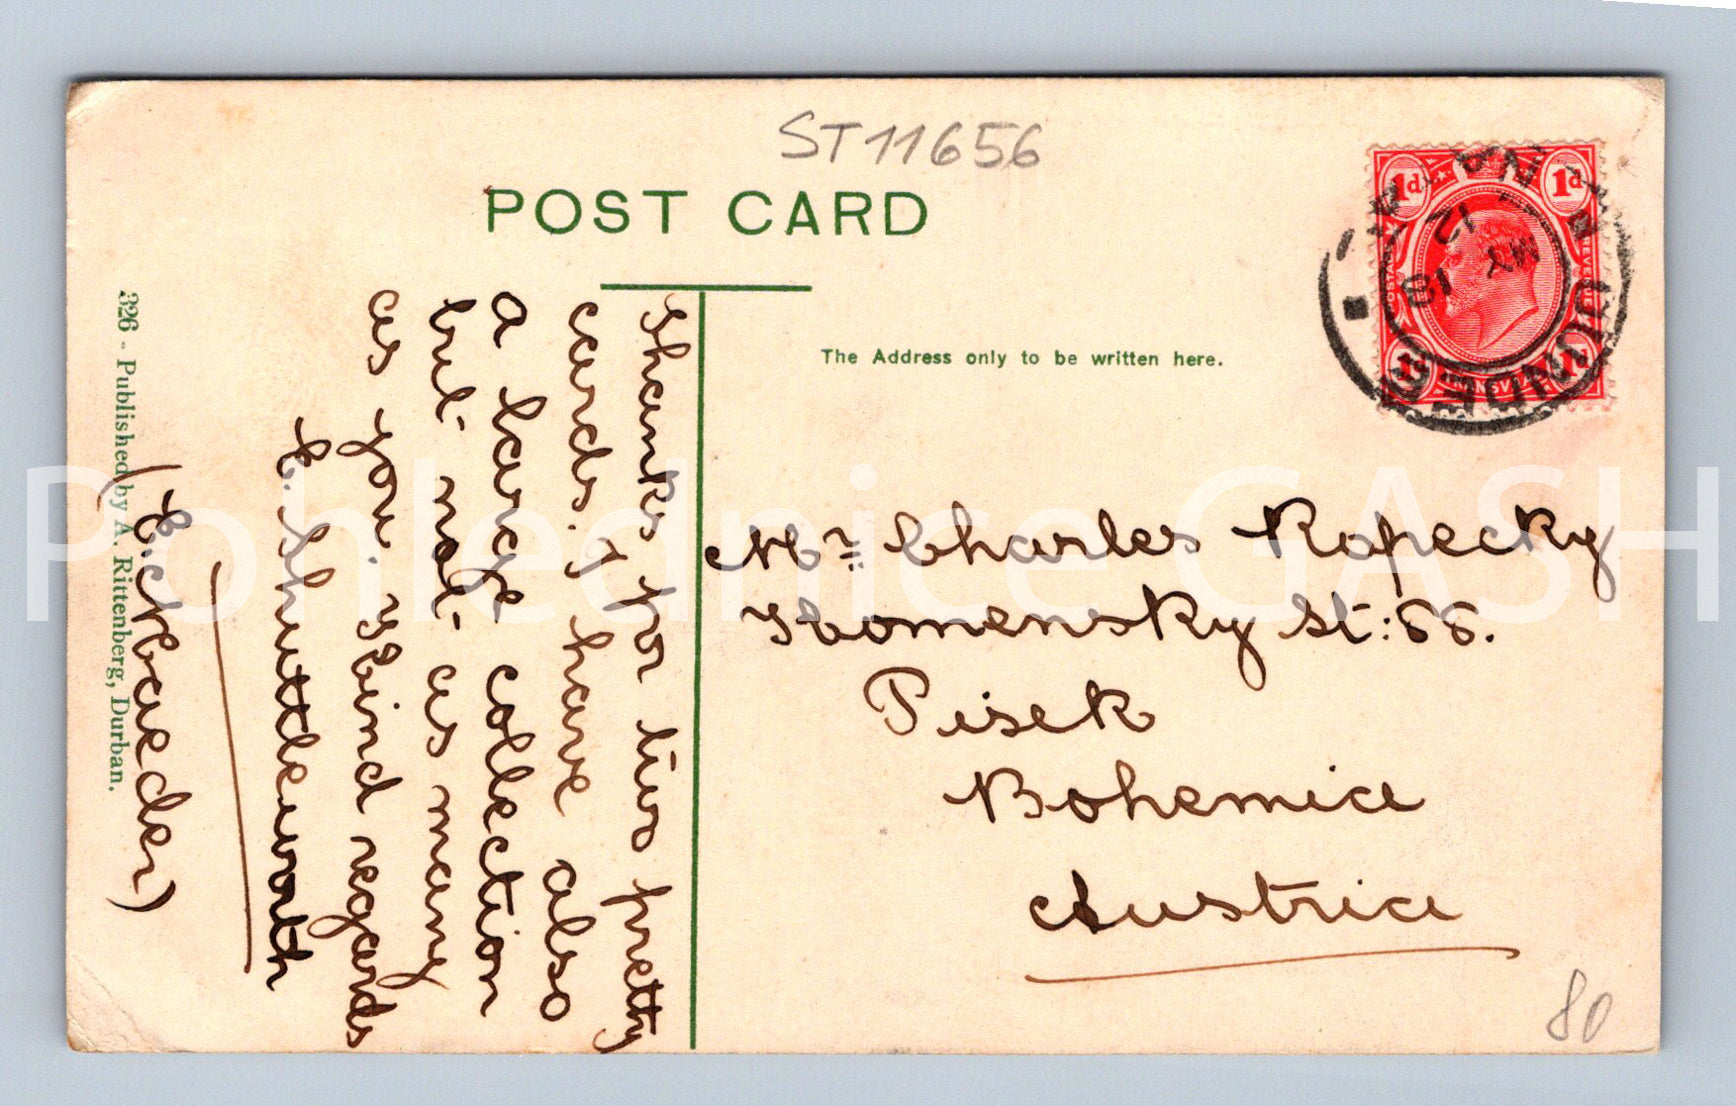 ST11656
POST CARD
The Address only to be written here.
Thanks for two pretty
cards. I have also
a large collection
but not as many
as you. Kind regards
E. Shuttleworth
(E. Schraeder)
326 - Published by A. Rittenberg, Durban.
Mr. Charles Kopecky
Komensky St: 66.
Pisek
Bohemia
Austria
1d 1d
DUNDEE
NATAL
MY 18
12
80
Pohlednice GASH